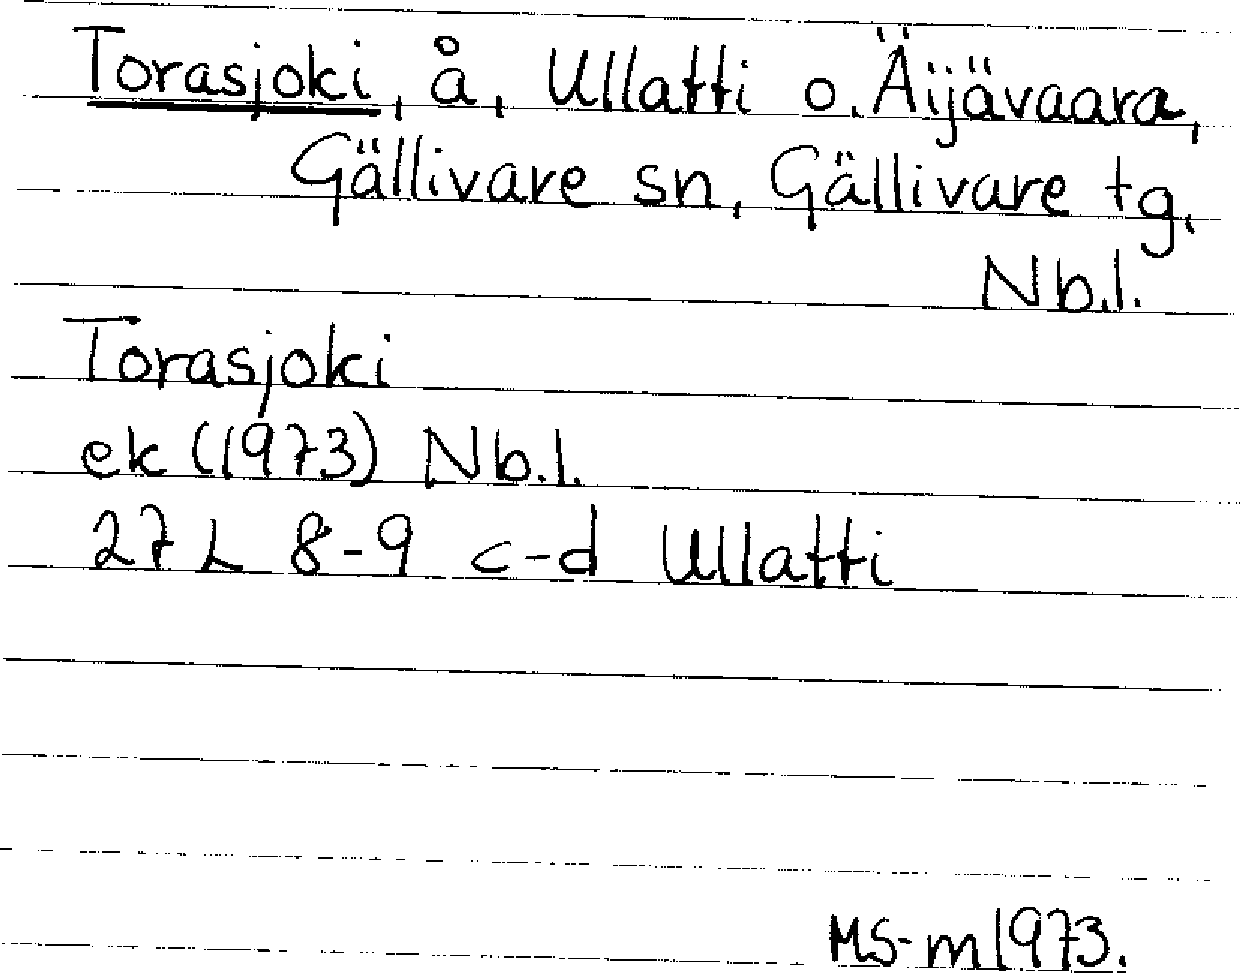 Torasjoki, å, Ullatti o. Äijävaara,
Gällivare sn, Gällivare tg,
Nb.l.
Torasjoki
ek (1973) Nb.l.
27 L 8-9 c-d Ullatti
MS-m 1973.